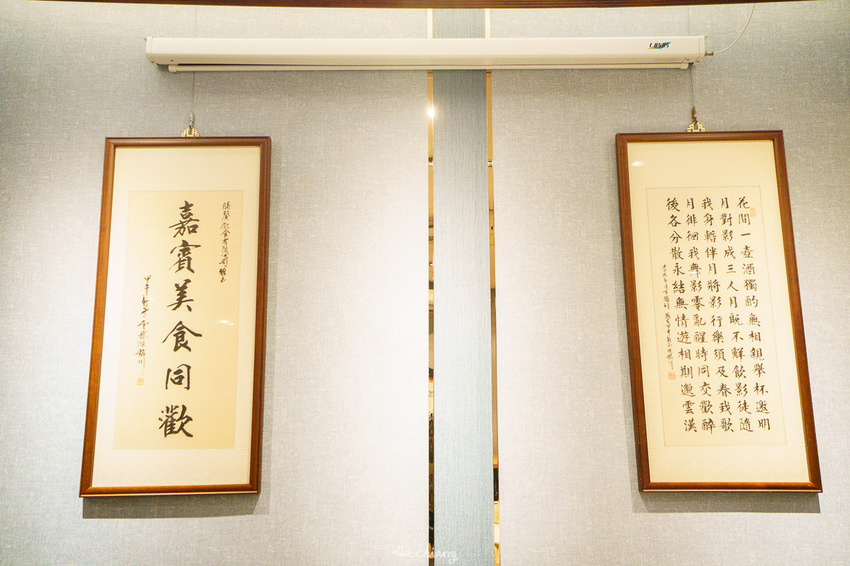 嘉賓美食同歡
花間一壺酒獨酌無相親舉杯邀明
月對影成三人月既不解飲影徒隨
我身暫伴月將影行樂須及春我歌
月徘徊我舞影零亂醒時同交歡醉
後各分散永結無情遊相期邈雲漢